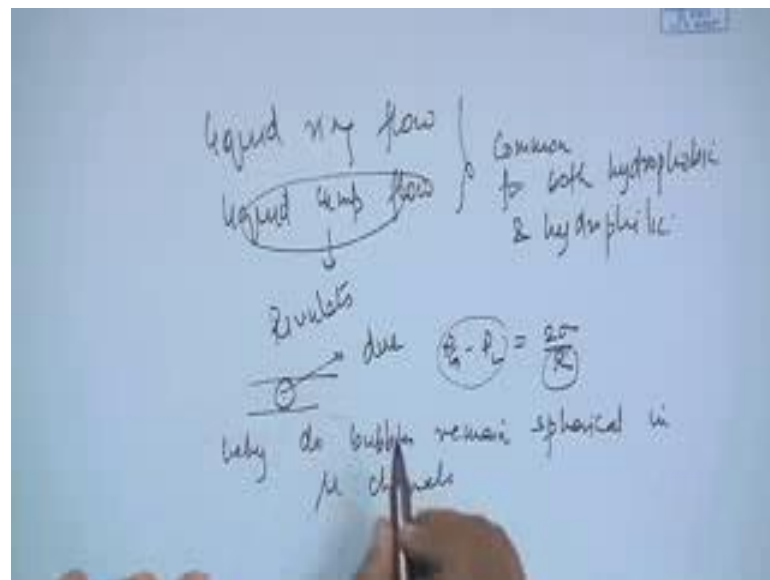 liquid ring flow
liquid lump flow
Common
for both hydrophobic
& hydrophilic
Rivulets
due P_G - P_L = 2σ/R
why do bubbles remain spherical in
μ channels